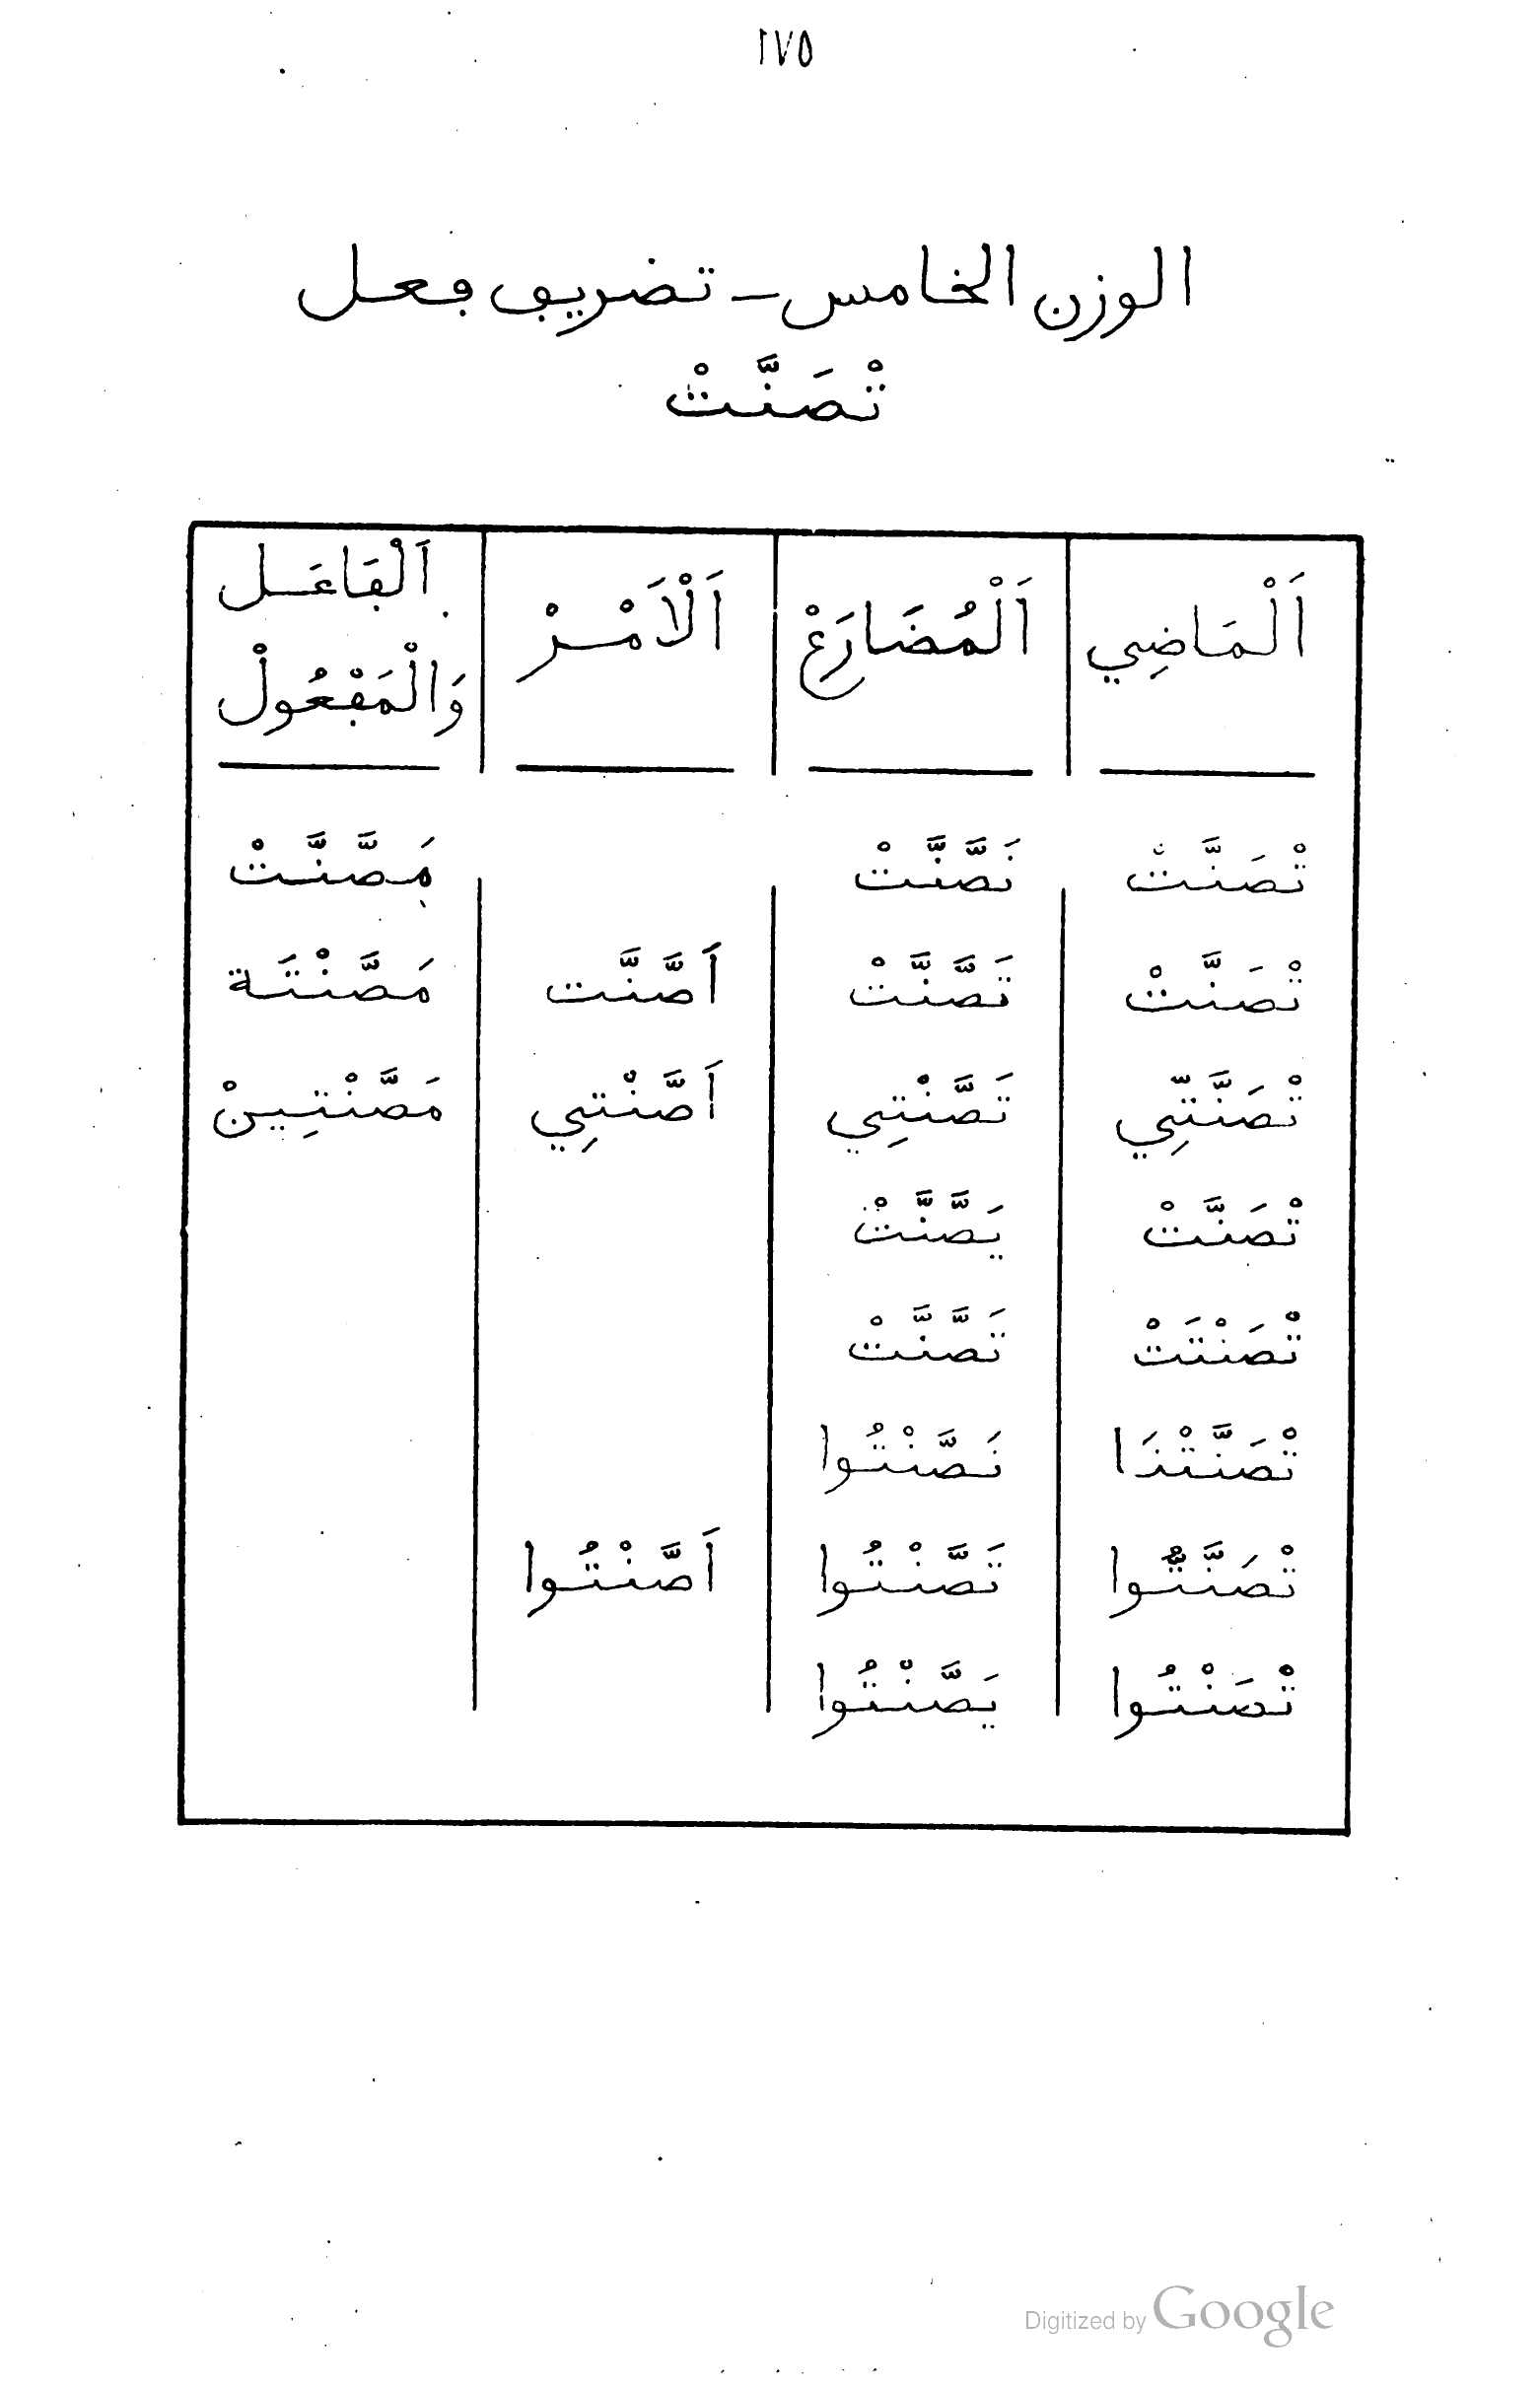 ١٧٥
الوزن الخامس - تضريف فعل
تْصَنَّتْ
اَلْمَاضِي اَلْمُضَارَعْ اَلْاَمْرْ اَلْفَاعَل وَالْمَفْعُولْ
تْصَنَّتْ نَصَّنَّتْ مَصَّنَّتْ
تْصَنَّتْ تَصَّنَّتْ اَصَّنَّت مَصَّنْتَة
تْصَنَّتِّي تَصَّنْتِي اَصَّنْتِي مَصَّنْتِينْ
تْصَنَّتْ يَصَّنَّتْ
تْصَنْتَتْ تَصَّنَّتْ
تْصَنَّتْنَا نَصَّنْتُوا
تْصَنَّتُّوا تَصَّنْتُوا اَصَّنْتُوا
تْصَنْتُوا يَصَّنْتُوا
Digitized by Google